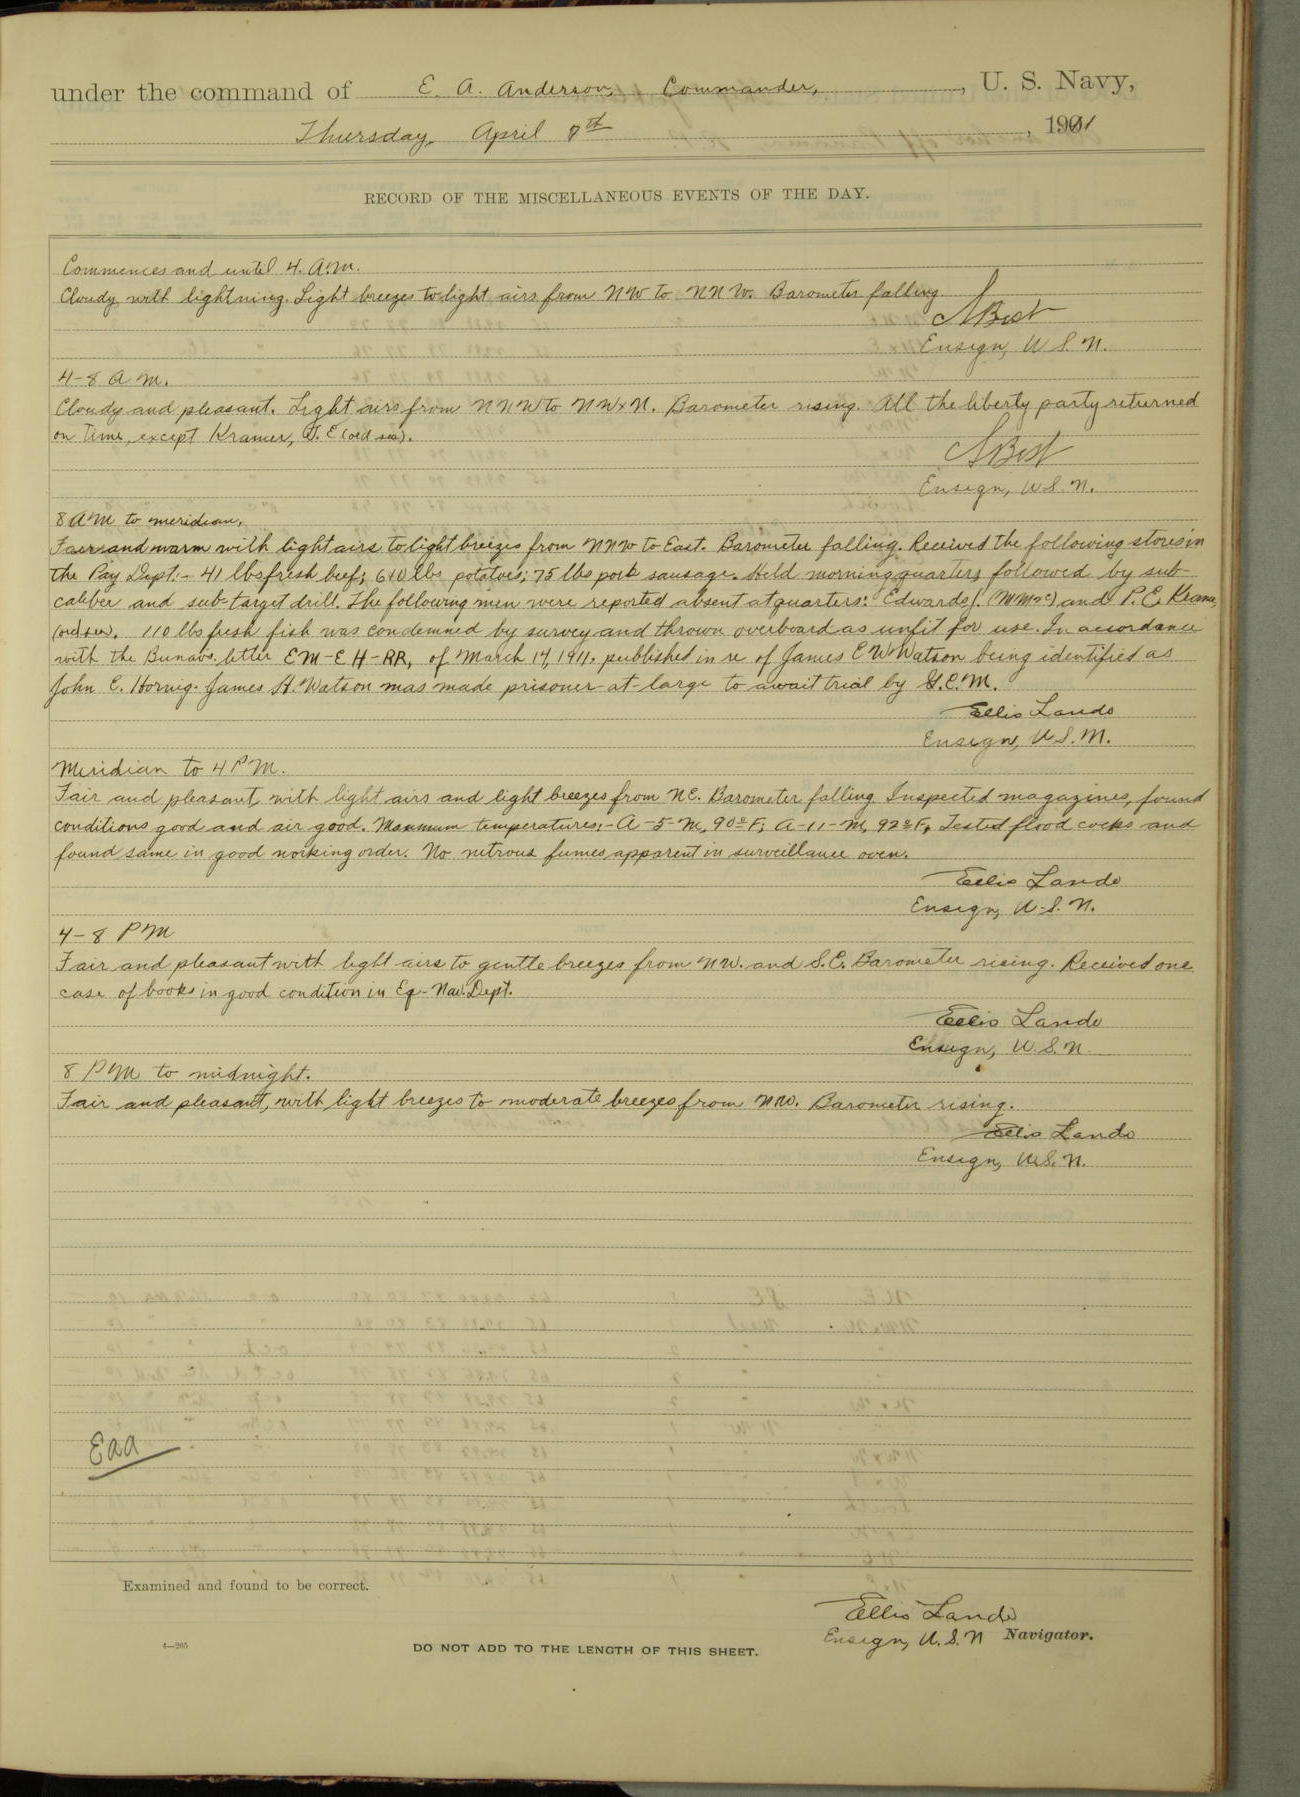 under the command of E. A. Anderson, Commander, , U. S. Navy,
Thursday, April 7th , 1911
RECORD OF THE MISCELLANEOUS EVENTS OF THE DAY.
Commences and until 4. A.M.
Cloudy with lightning. Light breezes to light airs from NW to NNW. Barometer falling.
Best
Ensign, U. S. N.
4-8 A M.
Cloudy and pleasant. Light airs from NNW to NWxN. Barometer rising. All the liberty party returned
on time, except Kramer, P. E (ord sea).
Best
Ensign, U.S.N.
8 AM to meridian.
Fair and warm with light airs to light breezes from NNW to East. Barometer falling. Received the following stores in
the Pay Dept:- 41 lbs fresh beef; 610 lbs potatoes; 75 lbs pork sausage. Held morning quarters followed by sub-
caliber and sub-target drill. The following men were reported absent at quarters: Edwards J. (MM2c) and P. E. Kramer
(ord sea). 110 lbs fresh fish was condemned by survey and thrown overboard as unfit for use. In accordance
with the Bunav. letter EM-EH-RR, of March 14, 1911. published in re of James E W Watson being identified as
John C. Hornig. James H. Watson was made prisoner-at-large to await trial by G.C.M.
Ellis Lando
Ensign, U.S.N.
Meridian to 4 PM.
Fair and pleasant with light airs and light breezes from NE. Barometer falling Inspected magazines, found
conditions good and air good. Maximum temperatures:- A-5-M, 90°F; A-11-M, 92°F, Tested flood cocks and
found same in good working order. No nitrous fumes apparent in surveillance oven.
Ellis Lando
Ensign, U.S.N.
4-8 PM
Fair and pleasant with light airs to gentle breezes from NW. and S.E. Barometer rising. Received one
case of books in good condition in Eq-Nav. Dept.
Ellis Lando
Ensign, U.S.N.
8 PM to midnight.
Fair and pleasant, with light breezes to moderate breezes from NW. Barometer rising.
Ellis Lando
Ensign, U.S.N.
Eaa
Examined and found to be correct.
Ellis Lando
Ensign, U.S.N Navigator.
4—265
DO NOT ADD TO THE LENGTH OF THIS SHEET.